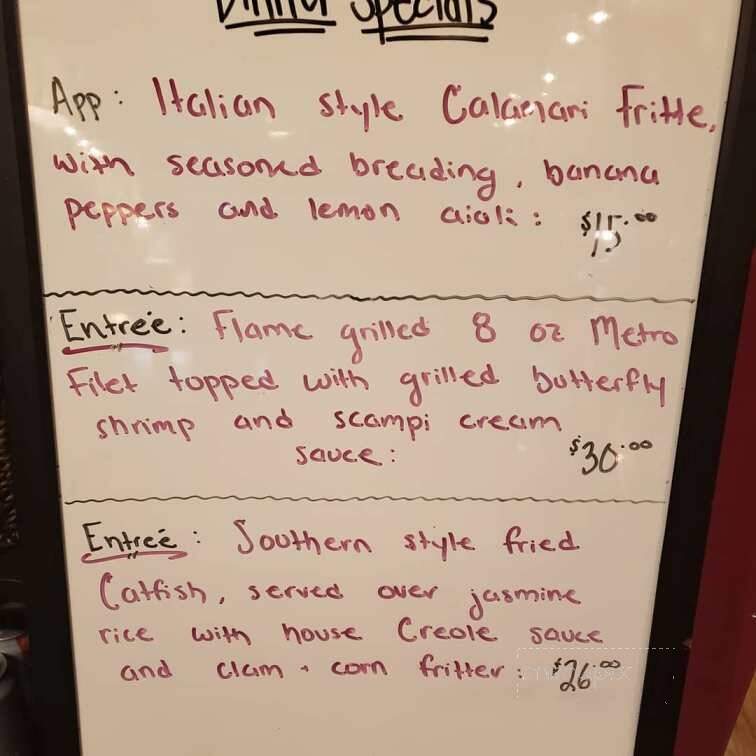 Dinner Specials
App: Italian style Calamari Fritte,
with seasoned breading, banana
peppers and lemon aioli: $15.00
Entreé: Flame grilled 8 oz Metro
Filet topped with grilled butterfly
shrimp and scampi cream
sauce: $30.00
Entreé: Southern style fried
Catfish, served over jasmine
rice with house Creole sauce
and clam + corn fritter: $26.00